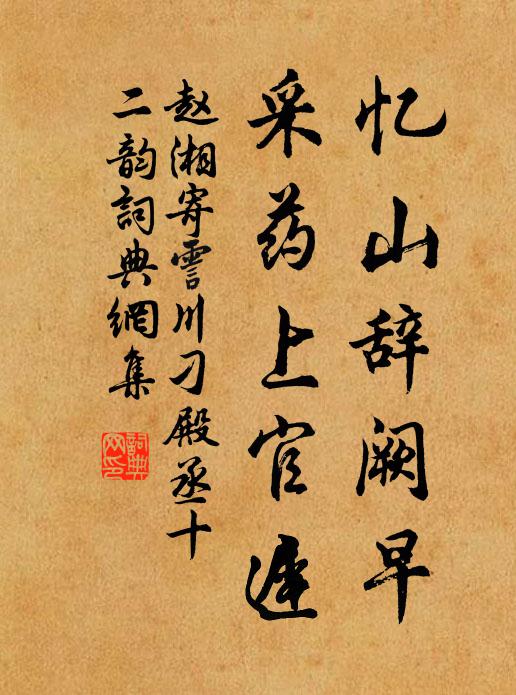 忆山辞阙早
采药上官迟
赵湘寄霅川刁殿丞十
二韵詞典網集
詞典
网印